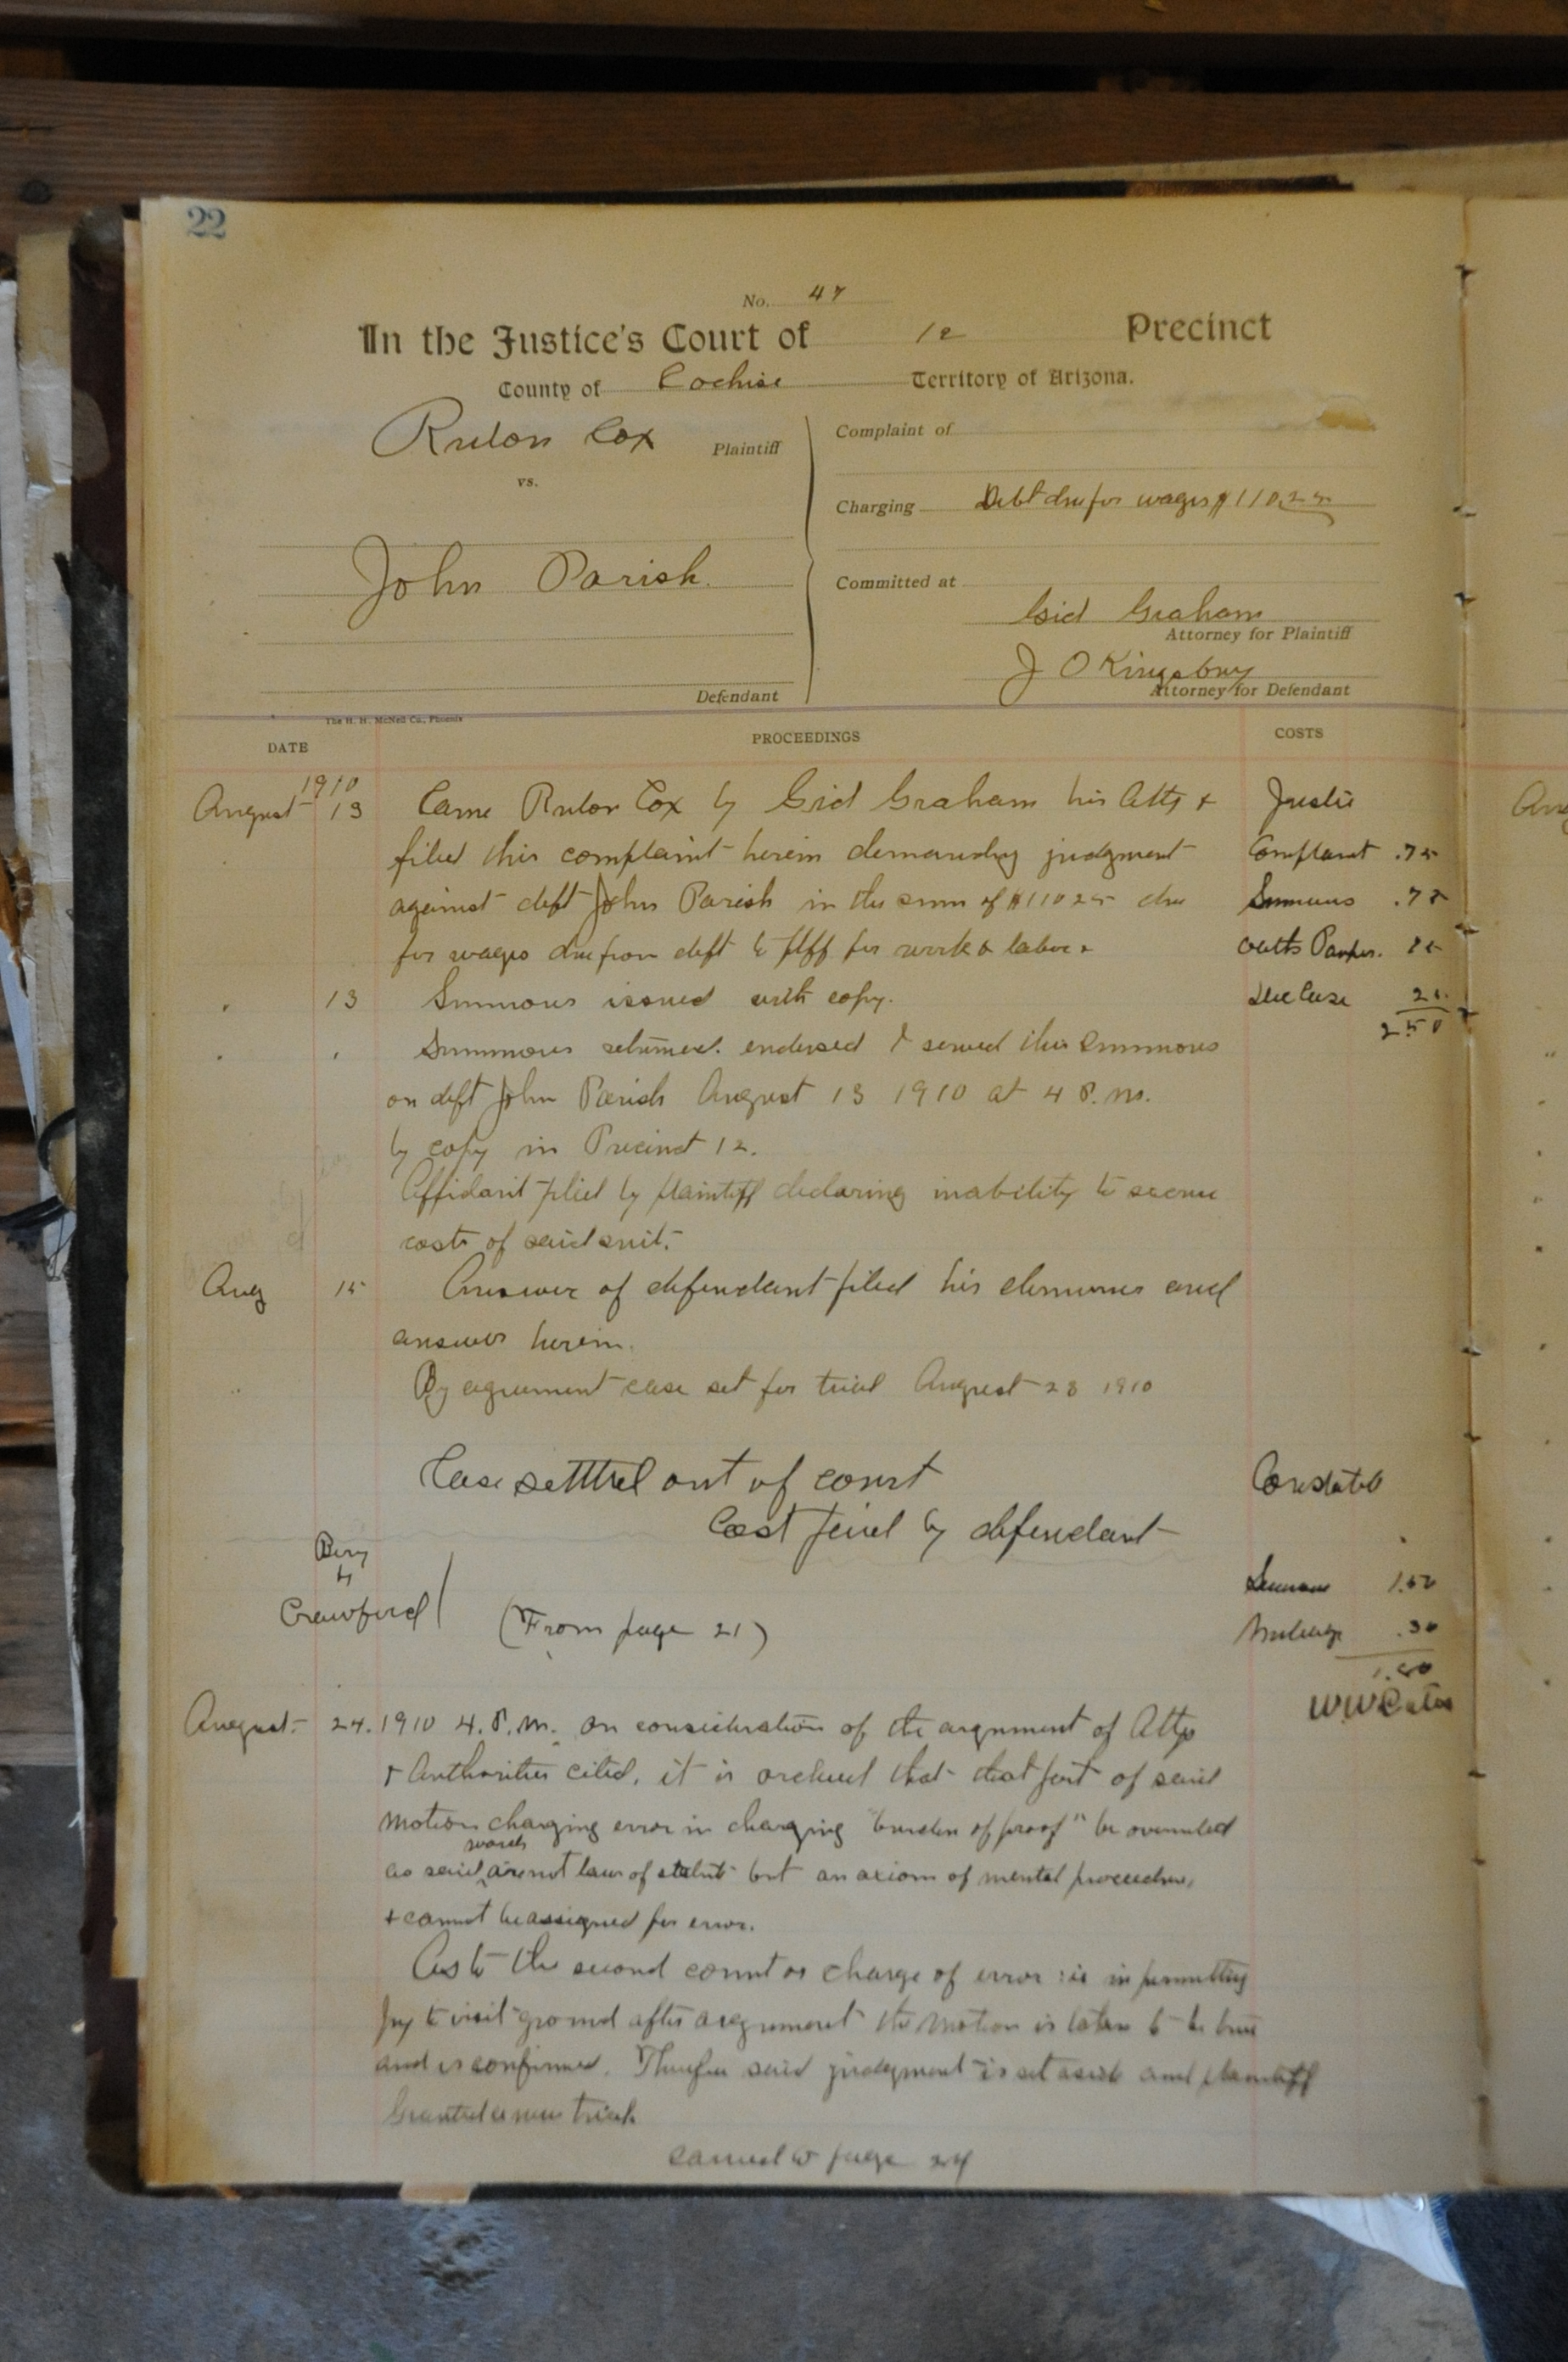 22
No. 47
In the Justice's Court of 12 Precinct
County of Cochise Territory of Arizona.
Rulon Cox Plaintiff
vs.
John Parish.
Defendant
Complaint of
Charging Debt due for wages $110.25
Committed at
Gid Graham
Attorney for Plaintiff
J O Kingsbury
Attorney for Defendant
The H. H. McNeil Co., Phoenix
DATE PROCEEDINGS COSTS
1910
August 13 Came Rulon Cox by Gid Graham his Atty +
filed this complaint herein demanding judgment
against deft John Parish in the sum of $110 25 due
for wages due from deft to plff for work & labor.
" 13 Summons issued with copy.
" " Summons returned. endorsed I served this Summons
on deft John Parish August 13 1910 at 4 P.m.
by copy in Precinct 12.
Affidavit filed by plaintiff declaring inability to secure
costs of said suit.
Aug 15 Answer of defendant filed his demurrer and
answer herein.
" By agrument case set for trial August 23 1910
Case setttled out of court
Cost paid by defendant
Justice
Complaint .75
Summons .75
Oaths Papers.
Case
2 50
Constable
Summons 1.50
Mileage .30
1.80
Bery
Crawford
(From page 21)
August 24. 1910 4. P.m. On consideration of the argument of Attys
+ Authorities cited, it is ordered that that part of said
Motion charging error in charging "burden of proof" be overruled
as said words are not law of statute but an axiom of mental procedure,
+ cannot be assigned for error.
As to the second count or charge of error: ie in permitting
jury to visit ground after argument the Motion is taken to be true
and is confirmed. Therefore said judgment is set aside and plaintiff
Granted a new trial.
Carried to page 24